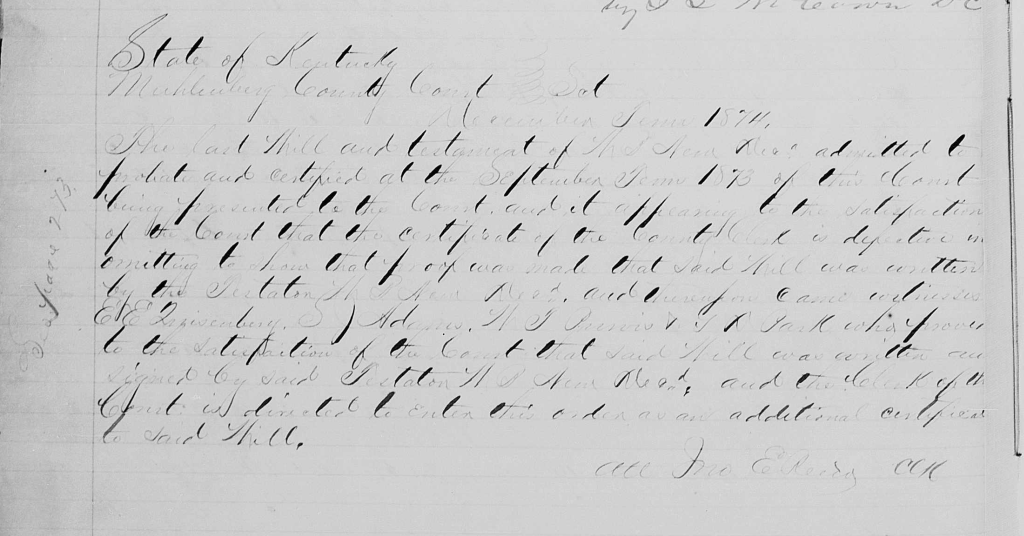 State of Kentucky
Muhlenberg County Court Sct
December Term 1874.
The last Will and testament of W. S. New Decd. admitted to
probate and certified at the September Term 1873 of this Court
being presented to the Court, and it appearing to the satisfaction
of the Court that the certificate of the County Clerk is defective in
omitting to show that proof was made that said Will was written
by the Testator W. S. New Decd. and thereupon came witnesses
E. E. Quisenberry. Adams. W J & Park who proves
to the satisfaction of the Court that said Will was written an
signed by said Testator W. S. New Decd. and the Clerk of th
Court is directed to enter this order as an additional certificate
to said Will.
Att Jno. E Reno Clk